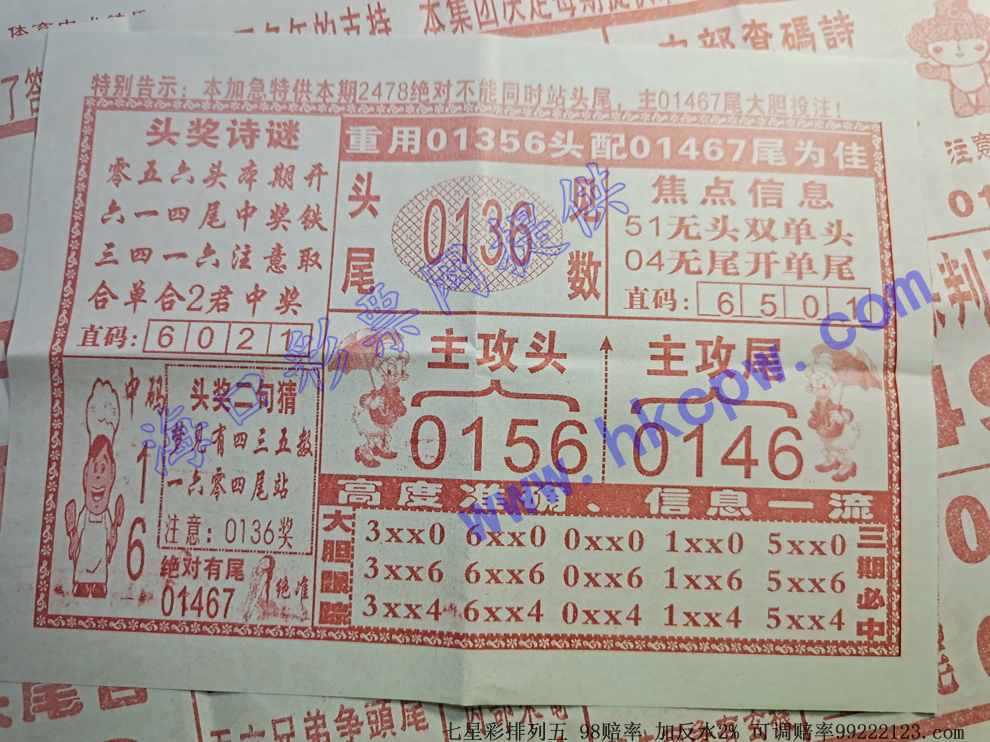 的支持
本集团决定每期提供
内部查碼詩
了答
注意
特别告示：本加急特供本期2478绝对不能同时站头尾，主01467尾大胆投注！
头奖诗谜
零五六头本期开
六一四尾中奖铁
三四一六注意取
合单合2君中奖
直码：6021
重用01356头配01467尾为佳
头尾
0136
数
焦点信息
51无头双单头
04无尾开单尾
直码：6501
主攻头
0156
主攻尾
0146
中码
16
头奖二句猜
有四三五数
一六零四尾站
注意：0136奖
绝对有尾
01467
绝准
高度准确、信息一流
大胆跟踪
3xx0 6xx0 0xx0 1xx0 5xx0
3xx6 6xx6 0xx6 1xx6 5xx6
3xx4 6xx4 0xx4 1xx4 5xx4
三期必中
海口彩票网提供
www.hkcpw.com
兄弟争頭尾
七星彩排列五 98赔率 加反水2% 可调赔率99222123.com